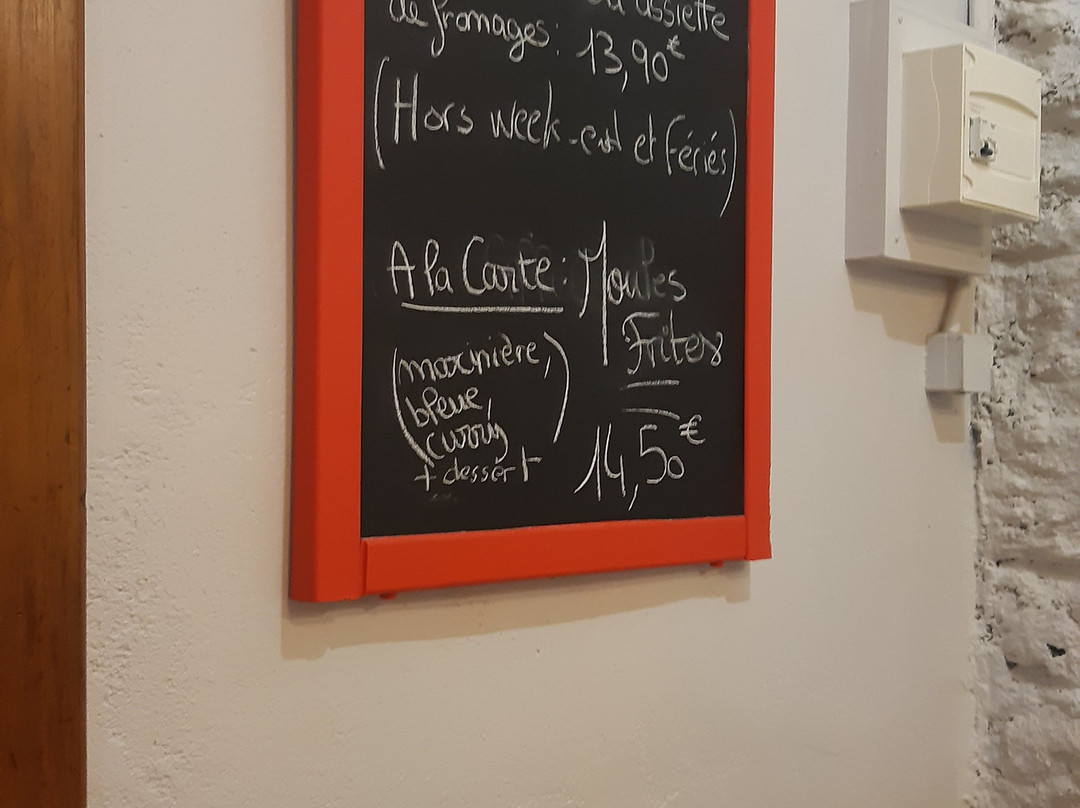 ou assiette
de fromages: 13,90€
(Hors week-end et fériés)
A la Carte: Moules
Frites
(marinière,
bleue,
curry)
+ dessert
14,50€